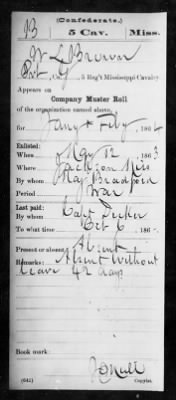 (Confederate.)
B 5 Cav. Miss.
W L Brewer
Pvt, Co. G, 5 Reg't Mississippi Cavalry.
Appears on
Company Muster Roll
of the organization named above,
for Jany & Feby, 1864
Enlisted:
When May 12, 1863
Where Jackson Miss
By whom Maj Bradford
Period War
Last paid:
By whom Capt
To what time Oct 6, 186
Present or absent Absent
Remarks: Absent Without
leave 42 days
Book mark:
(642) Copyist.